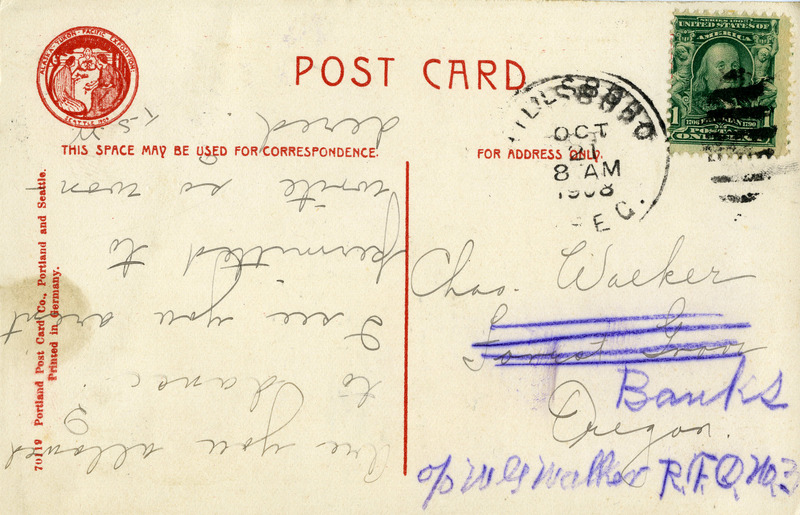 ALASKA · YUKON · PACIFIC EXPOSITION
SEATTLE 1909
POST CARD
THIS SPACE MAY BE USED FOR CORRESPONDENCE.
FOR ADDRESS ONLY.
SERIES 1902
UNITED STATES OF
AMERICA
1 1706 FRANKLIN 1790 1
POSTAGE
ONE CENT
HILLSBORO
OCT
21
8 AM
1908
REC.
70119 Portland Post Card Co., Portland and Seattle.
Printed in Germany.
Are you allowed
to dance.
I see you arent
permitted to
write so won-
dered.
Chas. Walker
Forest Grove
Banks
Oregon.
c/o W G Walker R.F.D. No. 3